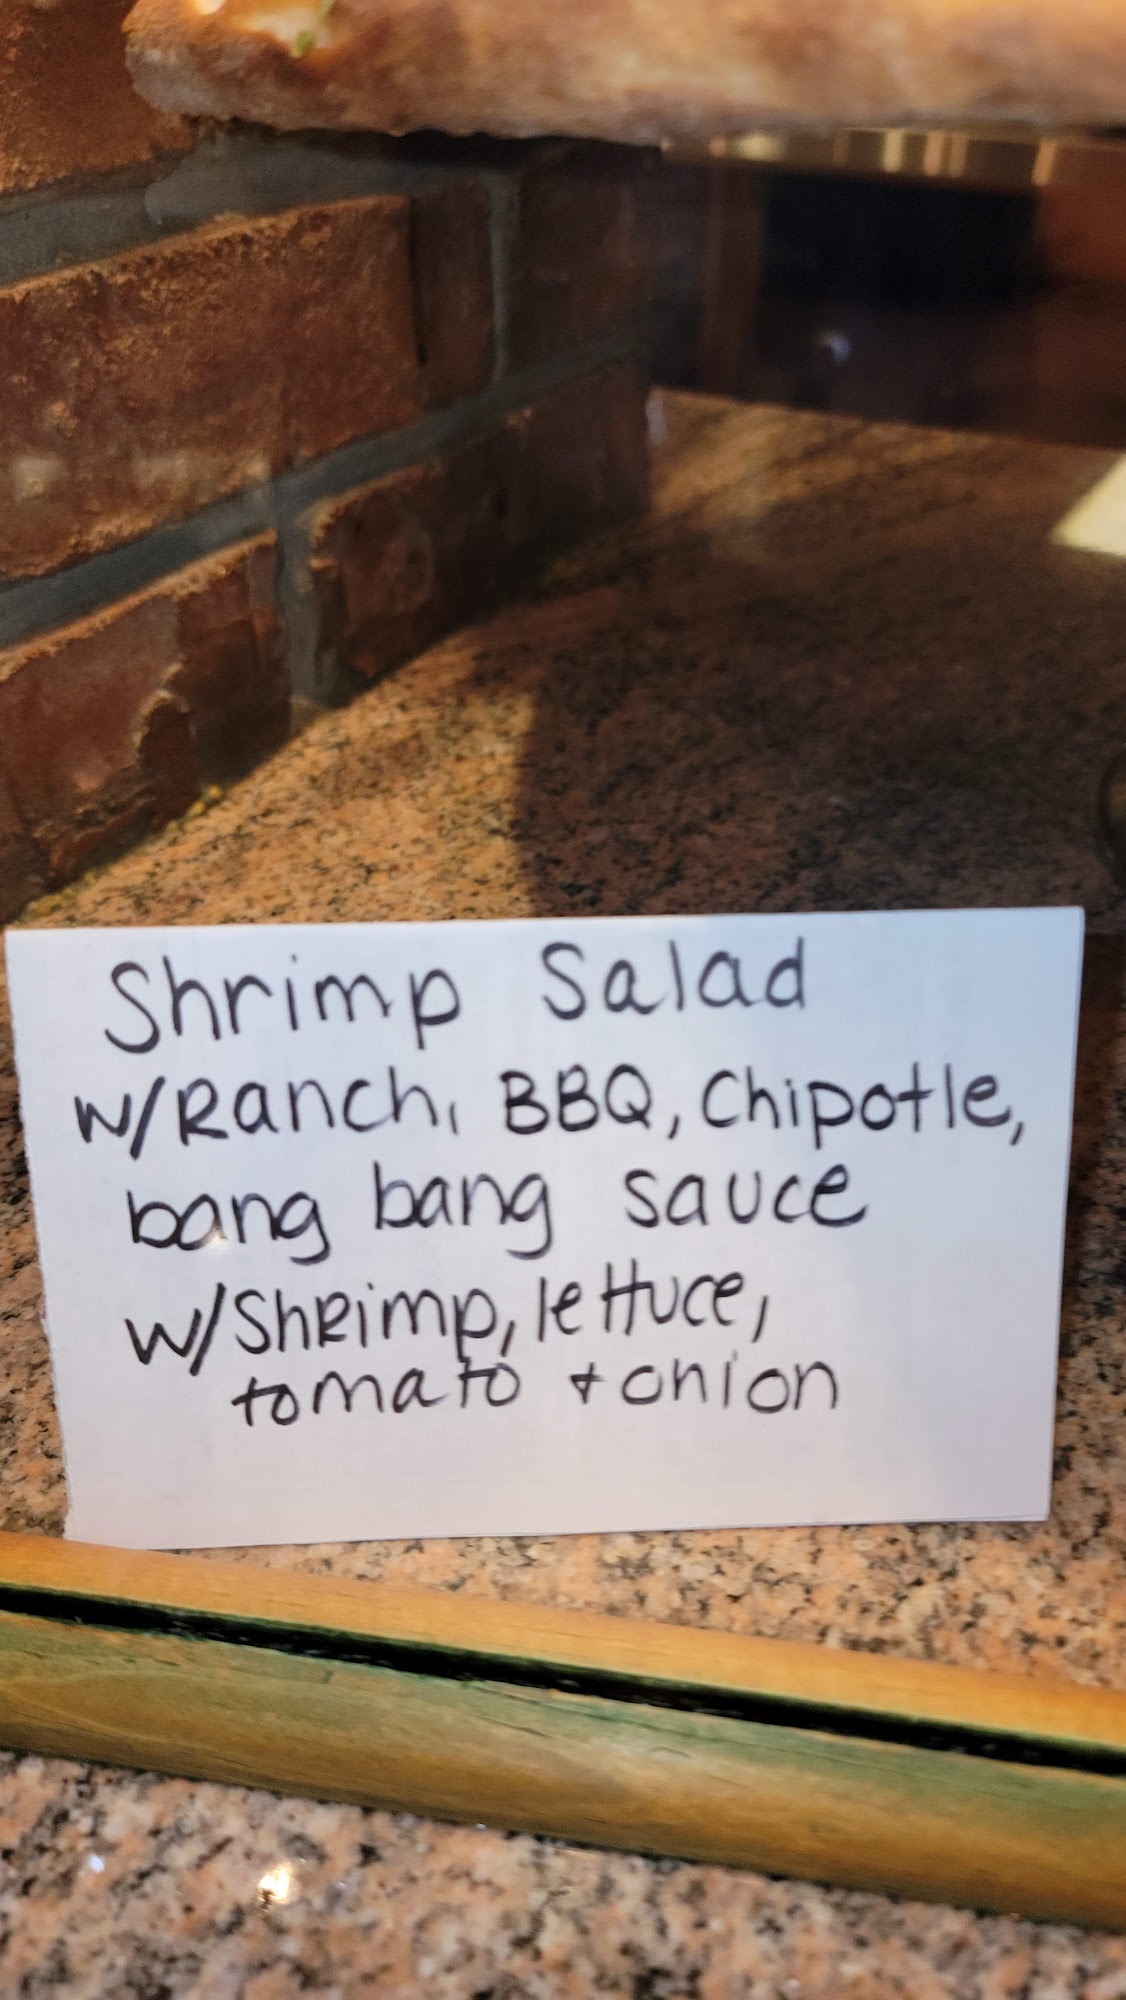 Shrimp Salad
w/Ranch, BBQ, Chipotle,
bang bang sauce
w/Shrimp, lettuce,
tomato + onion